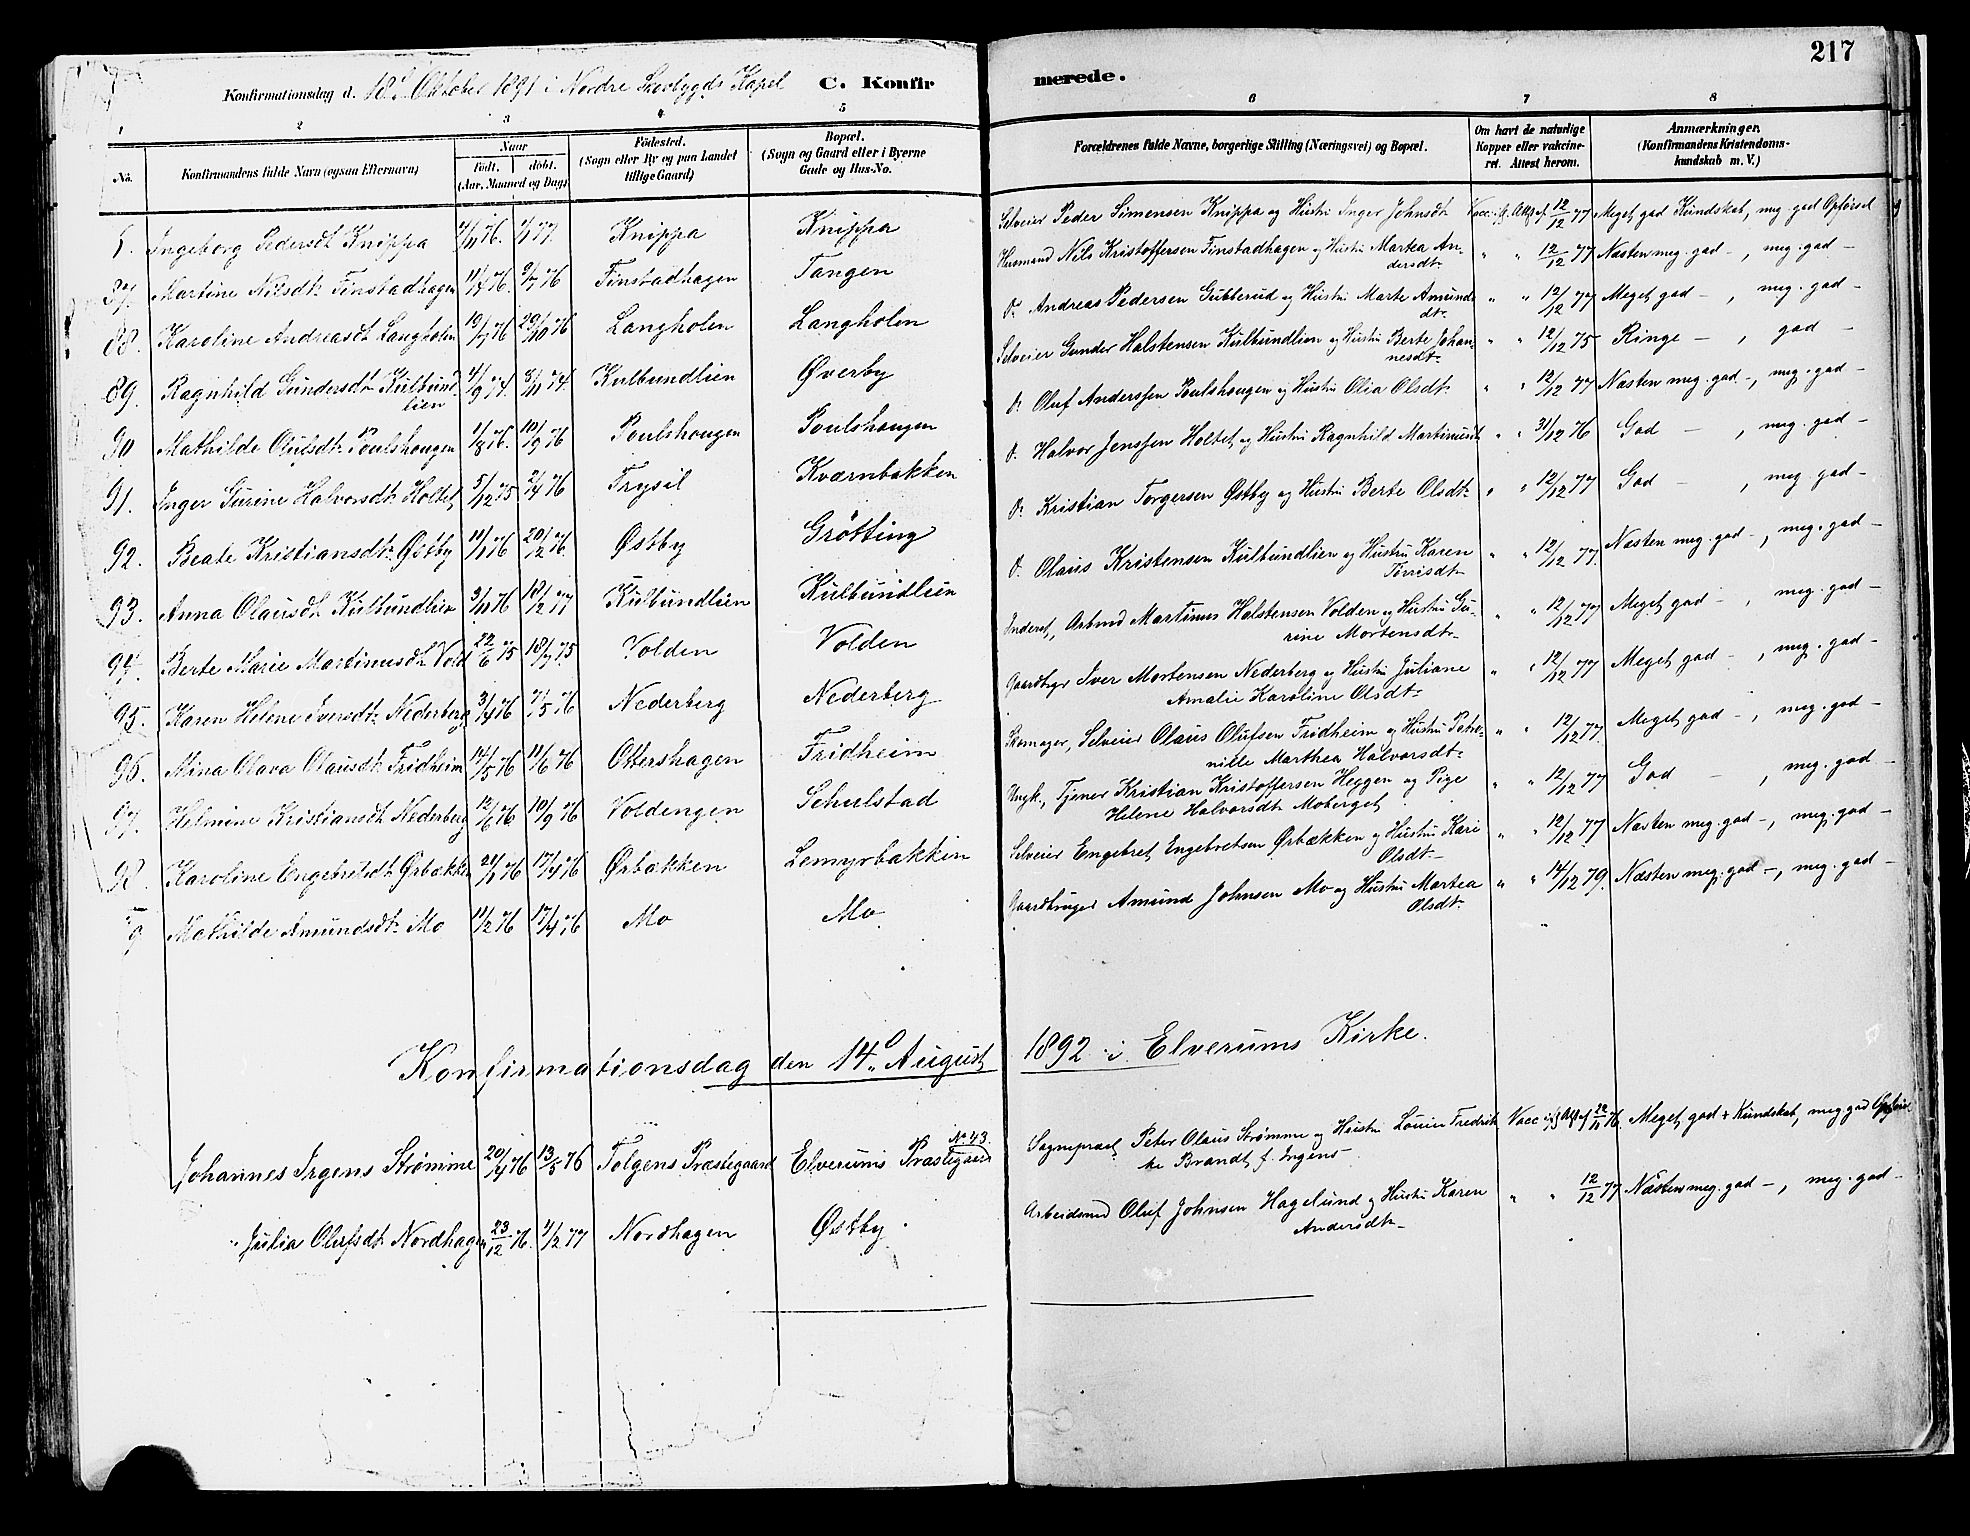 217
Konfirmationsdag d. 18de Oktober 1891 i Nordre Skovbygds Kapel C. Konfirmerede.
1 2 3 4 5 6 7 8
No. Konfirmandens fulde Navn (ogsaa Efternavn) Naar Født. døbt. (Aar, Maaned og Dag) Fødested. (Sogn eller By og paa Landet tillige Gaard) Bopæl. (Sogn og Gaard eller i Byerne Gade og Hus-No. Forældrenes fulde Navne, borgerlige Stilling (Næringsvei) og Bopæl. Om havt de naturlige Kopper eller vakcineret. Attest herom. Anmærkninger. (Konfirmandens Kristendomskundskab m. V.)
Ingeborg Pedersdt Knippa 4/11 76. 1/1 77. Knippa Knippa Selveier Peder Simensen Knippa og Hustru Inger Johnsdt 12/12 77 Meget god Kundskab, meg. god Opførsel
87. Martine Nilsdt. Finstadhagen 11/4 76. 9/7 76 Finstadhagen Tangen Husmand Nils Kristoffersen Finstadhagen og Hustru Martea Andersdt. " " 12/12 77 Næsten meg. god -, meg. god -
88. Karoline Andreasdt Langholen 19/7 76 29/10 76 Langholen Langholen Do. Andreas Pedersen Gubberud og Hustru Marte Amundsdt. " " 12/12 77 Meget god -, meg. god -
89. Ragnhild Gundersdt. Kulbundlien 4/9 74. 8/11 74 Kulbundlien Øverby Selveier Gunder Halstensen Kulbundlien og Hustru Berte Johannesdt. " " 12/12 75 Ringe -, god -
90 Mathilde Olufsdt. Poulshougen 1/8 76. 10/9 76 Poulshougen Poulshaugen Do. Oluf Anderssen Poulshougen og Hustru Olia Olsdt. " " 12/12 77 Næsten meg. god -, meg. god -
91. Inger Surine Halvorsdt. Holtet 5/12 75 2/4 76 Trysil Kværnbakken Do. Halvor Jenssen Holtet og Hustru Ragnhild Martinusdt " " 31/12 76 God -, meg. god -
92. Beate Kristiansdt. Østby 11/11 76 20/12 76. Østby Grøtting Do. Kristian Torgersen Østby og Hustru Berte Olsdt. " " 12/12 77 God -, meg. god -
93. Anna Olausdt. Kulbundlien 3/11 76 18/2 77 Kulbundlien Kulbundlien Do. Olaus Kristensen Kulbundlien og Hustru Karen " " 12/12 77. Næsten meg. god -, meg. god -
94. Berte Marie Martinusdt. Vold 22/6 75 18/7 75 Volden Volden Inderst, Arbmd Martinus Halstensen Volden og Hustru Gurine Mortensdt. " " 12/12 77 Meget god -, meg. god -
95. Karen Helene Iversdt. Nederberg 3/4 76 7/5 76 Nederberg Nederberg Gaardbrger Iver Mortensen Nederberg og Hustru Juliane Amalie Karoline Olsdt. " " 12/12 77 Meget god -, meg. god -
96. Mina Olava Olausdt. Fridheim 14/5 76 11/6 76 Ottershagen Fridheim Skomager, Selveier Olaus Olufsen Fridheim og Hustru Petrenille Marthea Halvorsdt. " " 12/12 77. Meget god -, meg. god -
97. Helmine Kristiansdt. Nederberg 12/6 76. 10/9 76 Voldengen Schulstad Ungk., Tjener Kristian Kristoffersen Heggen og Pige Helene Halvorsdt. Moberget " " 12/12 77 God -, meg. god -
98. Karoline Engebretsdt. Ørbækken 21/1 76 17/4 76 Ørbækken Lemyrbakken Selveier Engebret Engebretsen Ørbækken og Hustru Kari Olsdt. " " 12/12 77 Næsten meg. god -, meg. god -
Mathilde Amundsdt. Mo 11/2 76 17/4 76 Mo Mo Gaardbruger Amund Johnsen Mo og Hustru Martea Olsdt. " " 14/12 79. Næsten meg. god -, meg. god -
Konfirmationsdag den 14de August 1892 i Elverums Kirke.
Johannes Irgens Strømme 20/4 76 13/5 76 Tolgens Præstegaard Elverums Præstegaard No 43. Sognepræst Peter Olaus Strømme og Hustru Louise Fredrikke Brandt f. Irgens 22/11 76. Meget god + Kundskab, meg. god Opførsel
Julia Olufsdt. Nordhagen 23/12 76. 4/2 77 Nordhagen Østby Arbeidsmd Oluf Johnsen Hagelund og Hustru Karen Andersdt. " " 12/12 77 Næsten meg. god -, meg. god -